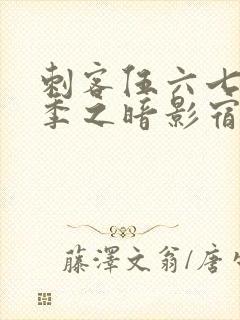 刺客伍六七
季之暗影宿
藤澤文翁/唐